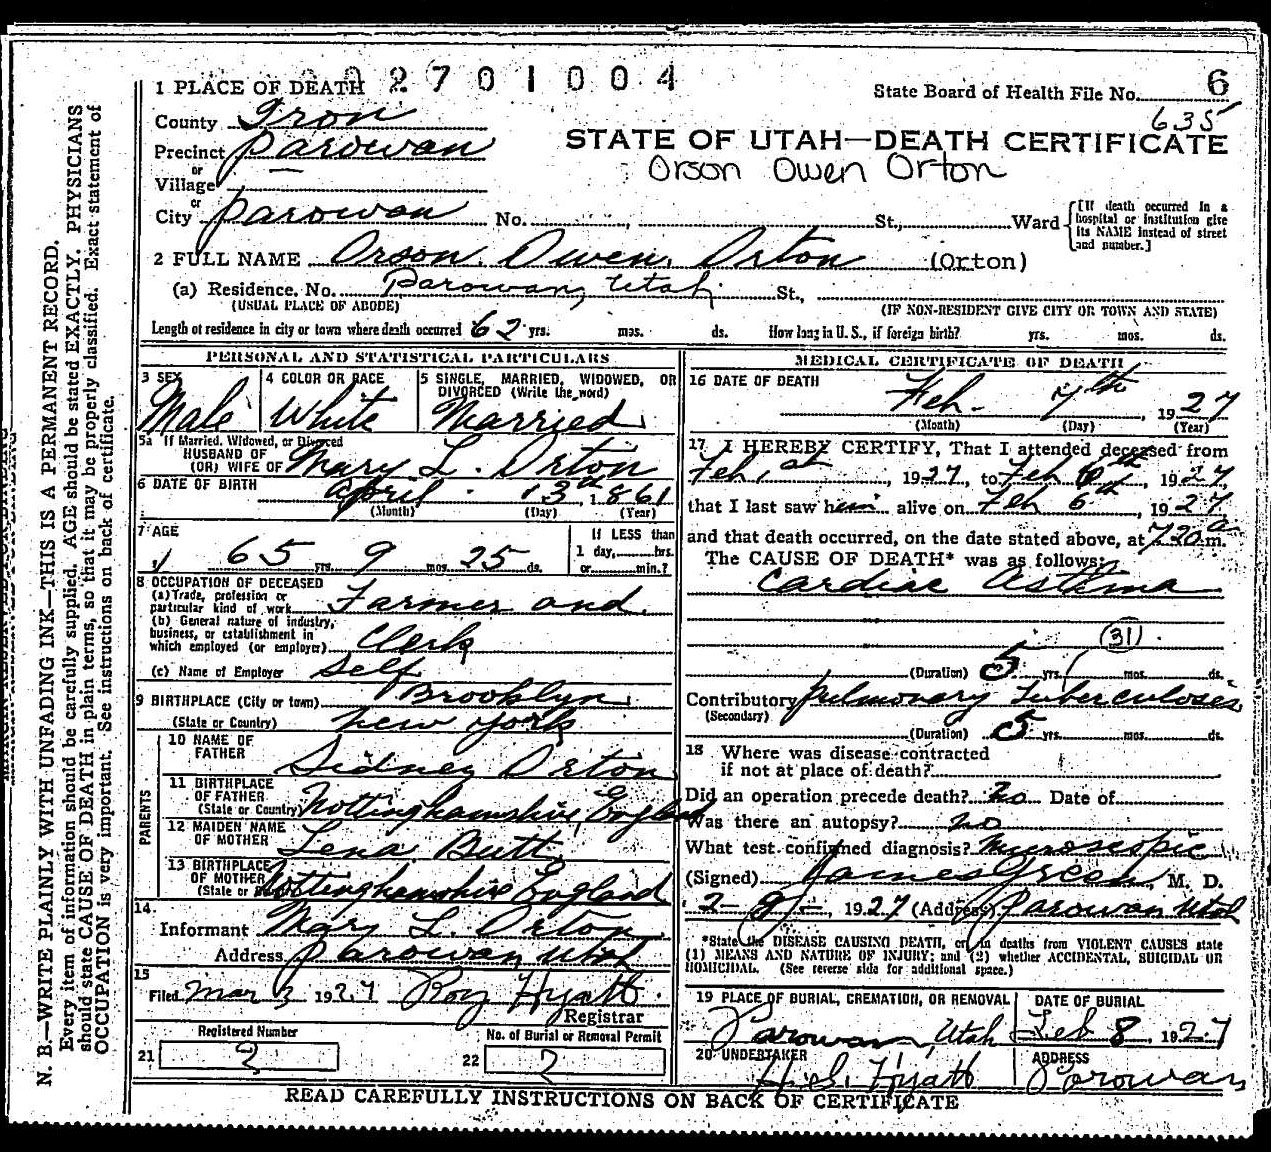 2701004
1 PLACE OF DEATH
State Board of Health File No. 6
635
County Iron
STATE OF UTAH—DEATH CERTIFICATE
Precinct Parowan
Orson Owen Orton
or
Village —
or
City Parowan No. St., Ward
[If death occurred in a hospital or institution give its NAME instead of street and number.]
2 FULL NAME Orson Owen Orton (Orton)
(a) Residence. No. Parowan, Utah St.,
(USUAL PLACE OF ABODE) (IF NON-RESIDENT GIVE CITY OR TOWN AND STATE)
Length of residence in city or town where death occurred 62 yrs. mos. ds. How long in U. S., if foreign birth? yrs. mos. ds.
PERSONAL AND STATISTICAL PARTICULARS
3 SEX 4 COLOR OR RACE 5 SINGLE, MARRIED, WIDOWED, OR
DIVORCED (Write the word)
Male White Married
5a If Married, Widowed, or Divorced
HUSBAND OF
(OR) WIFE OF Mary L. Orton
6 DATE OF BIRTH April 13th 1861
(Month) (Day) (Year)
7 AGE If LESS than
1 day, hrs.
65 yrs. 9 mos. 25 ds. or min.?
8 OCCUPATION OF DECEASED
(a) Trade, profession or
particular kind of work Farmer and
(b) General nature of industry,
business, or establishment in
which employed (or employer) Clerk
(c) Name of Employer Self
9 BIRTHPLACE (City or town) Brooklyn
(State or Country) New York
PARENTS
10 NAME OF
FATHER Sidney Orton
11 BIRTHPLACE
OF FATHER
(State or Country) Nottinghamshire, England
12 MAIDEN NAME
OF MOTHER Lena Butt
13 BIRTHPLACE
OF MOTHER
(State or Nottinghamshire England
14.
Informant Mary L. Orton
Address Parowan, Utah
15
Filed Mar 1927 Roy Hyatt
Registrar
Registered Number No. of Burial or Removal Permit
21 2 22 2
MEDICAL CERTIFICATE OF DEATH
16 DATE OF DEATH
Feb. 7th, 1927
(Month) (Day) (Year)
17 I HEREBY CERTIFY, That I attended deceased from
Feb, 1st, 1927, to Feb 6th, 1927,
that I last saw him alive on Feb 6th, 1927
and that death occurred, on the date stated above, at 720 a m.
The CAUSE OF DEATH* was as follows:
Cardiac Asthma
(31)
(Duration) 5 yrs. mos. ds.
Contributory Pulmonary Tuberculoses
(Secondary)
(Duration) 5 yrs. mos. ds.
18 Where was disease contracted
if not at place of death?
Did an operation precede death? no Date of
Was there an autopsy? no
What test confirmed diagnosis? Microscopic
(Signed) James Green, M. D.
2-9-, 1927 (Address) Parowan Utah
*State the DISEASE CAUSING DEATH, or, in deaths from VIOLENT CAUSES state
(1) MEANS AND NATURE OF INJURY; and (2) whether ACCIDENTAL, SUICIDAL OR
HOMICIDAL. (See reverse side for additional space.)
19 PLACE OF BURIAL, CREMATION, OR REMOVAL DATE OF BURIAL
Parowan, Utah Feb 8, 1927
20 UNDERTAKER ADDRESS
H. S. Hyatt Parowan
READ CAREFULLY INSTRUCTIONS ON BACK OF CERTIFICATE
N. B.—WRITE PLAINLY WITH UNFADING INK—THIS IS A PERMANENT RECORD.
Every item of information should be carefully supplied. AGE should be stated EXACTLY. PHYSICIANS
should state CAUSE OF DEATH in plain terms, so that it may be properly classified. Exact statement of
OCCUPATION is very important. See instructions on back of certificate.